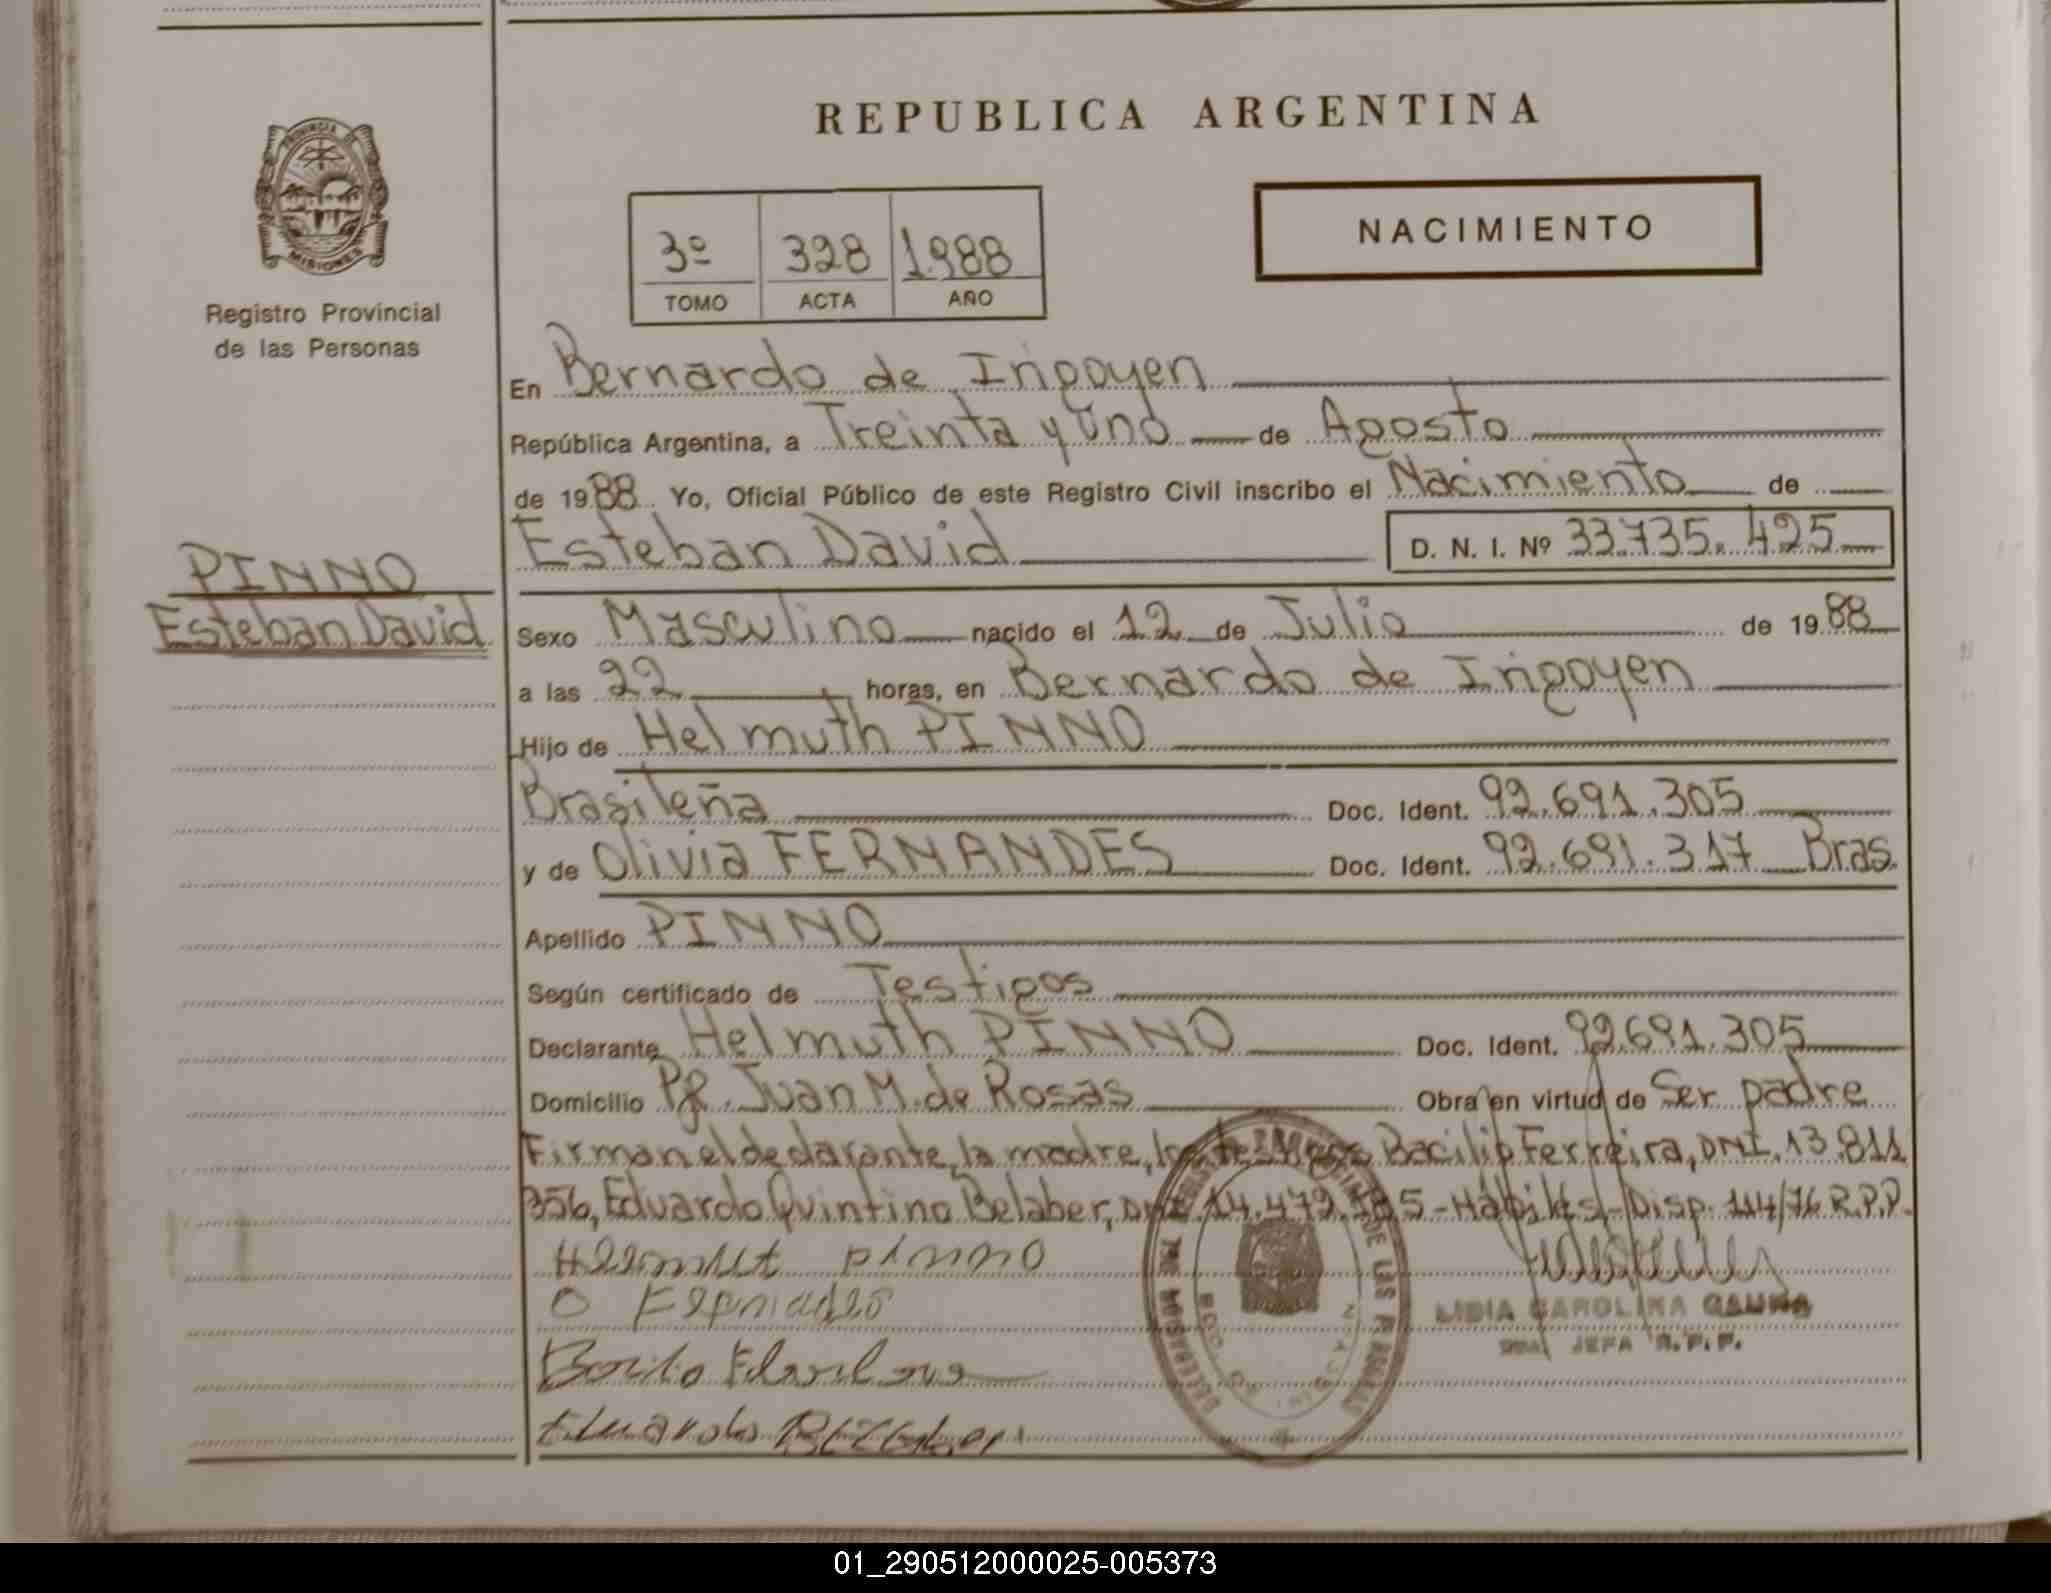 REPUBLICA ARGENTINA
PROVINCIA DE
MISIONES
Registro Provincial
de las Personas
3º 328 1988
TOMO ACTA AÑO
NACIMIENTO
En Bernardo de Irigoyen
República Argentina, a Treinta y Uno de Agosto
de 1988 Yo, Oficial Público de este Registro Civil inscribo el Nacimiento de
Esteban David D. N. I. Nº 33.735.425
PINNO
Esteban David
Sexo Masculino nacido el 12 de Julio de 1988
a las 22 horas, en Bernardo de Irigoyen
Hijo de Helmuth PINNO
Brasileña Doc. Ident. 92.691.305
y de Olivia FERNANDES Doc. Ident. 92.691.317 Bras.
Apellido PINNO
Según certificado de Testigos
Declarante Helmuth PINNO Doc. Ident. 92.691.305
Domicilio Pje. Juan M. de Rosas Obra en virtud de Ser padre
Firman el declarante, la madre, los testigos Bacilio Ferreira, DNI. 13.811
356, Eduardo Quintino Belaber, DNI. 14.479. - Hábiles - Disp. 114/76 R.P.P.
pinno
O
LIDIA CAROLINA
JEFA R.P.P.
Eduardo
DE LAS PERSONAS
01_290512000025-005373